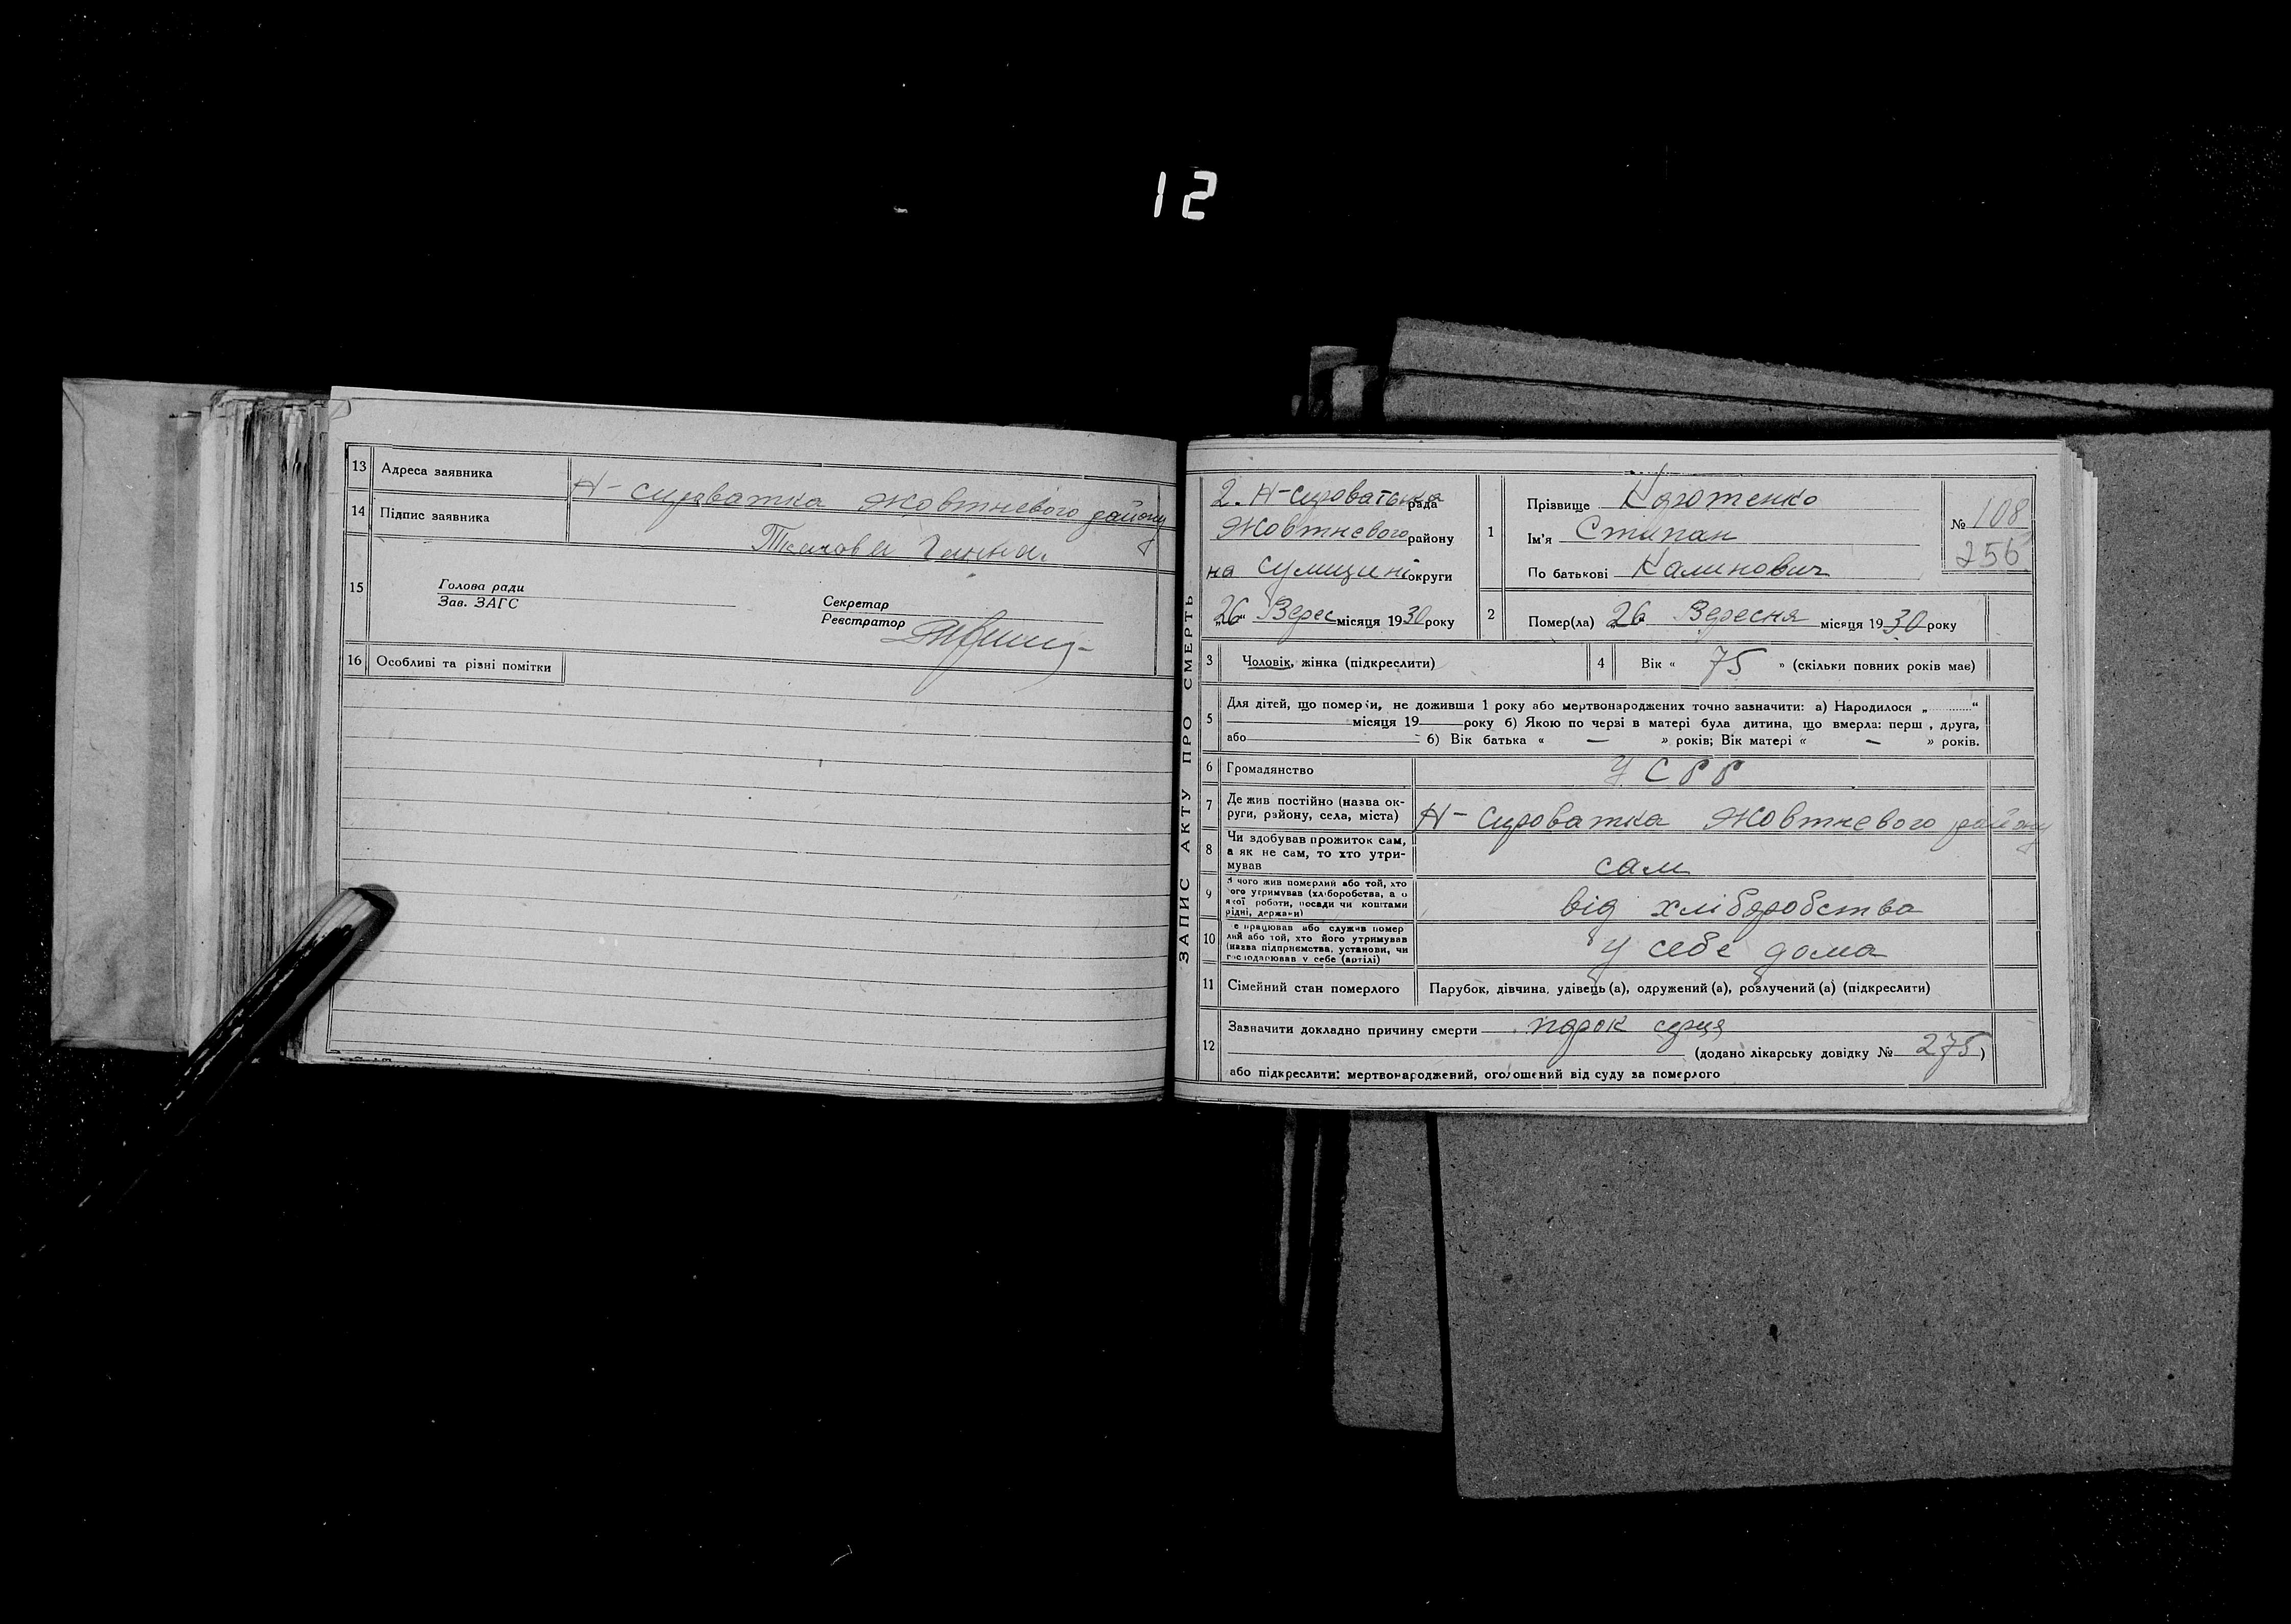 12
13 Адреса заявника Н-Сироватка Жовтневого району
14 Підпис заявника Ткачова Ганна.
15 Голова ради
Зав. ЗАГС
Секретар
Реєстратор
16 Особливі та різні помітки
ЗАПИС АКТУ ПРО СМЕРТЬ
2. Н-Сироватська рада
Жовтневого району
на Сумщині округи
„26“ Верес місяця 1930 року
1 Прізвище Коротенко
Ім'я Стипан
По батькові Калинович
№ 108
256
2 Помер(ла) 26 Вересня місяця 1930 року
3 Чоловік, жінка (підкреслити)
4 Вік « 75 » (скільки повних років має)
5 Для дітей, що померли, не доживши 1 року або мертвонароджених точно зазначити: а) Народилося „ “
місяця 19 року б) Якою по черзі в матері була дитина, що вмерла: перш , друга,
або – б) Вік батька « — » років; Вік матері « — » років.
6 Громадянство УСРР
7 Де жив постійно (назва ок-
руги, району, села, міста) Н-Сироватка Жовтневого району
8 Чи здобував прожиток сам,
а як не сам, то хто утри-
мував сам
9 З чого жив померлий або той, хто
його утримував (хліборобства, а о
якої роботи, посади чи коштами
рідні, держави) від хліборобства
10 е працював або служив помер
лий або той, хто його утримував
(назва підприємства, установи, чи
господарював у себе (артілі) у себе дома
11 Сімейний стан померлого Парубок, дівчина, удівець (а), одружений (а), розлучений (а) (підкреслити)
12 Зазначити докладно причину смерти порок серця
(додано лікарську довідку № 275)
або підкреслити: мертвонароджений, оголошений від суду за померлого